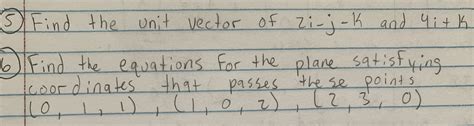 5 Find the unit vector of 2i-j-k and 4i+k
6 Find the equations for the plane satisfying
coordinates that passes these points
(0, 1, 1), (1, 0, 2), (2, 3, 0)